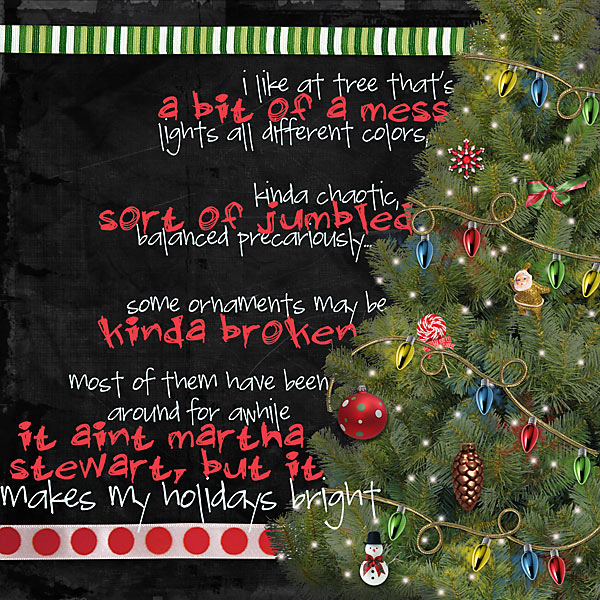 i like at tree that's
a bit of a mess
lights all different colors,
kinda chaotic,
sort of jumbled
balanced precariously...
some ornaments may be
kinda broken
most of them have been
around for awhile
it aint martha
stewart, but it
makes my holidays bright